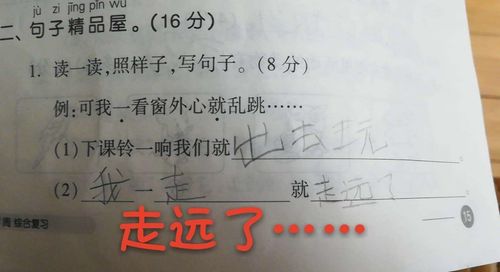 jù zi jīng pǐn wū
二、句子精品屋。(16 分)
1. 读一读,照样子,写句子。(8 分)
例:可我一看窗外心就乱跳……
(1)下课铃一响我们就出去玩。
(2)我一走就走远了。
走远了……
周 综合复习
15